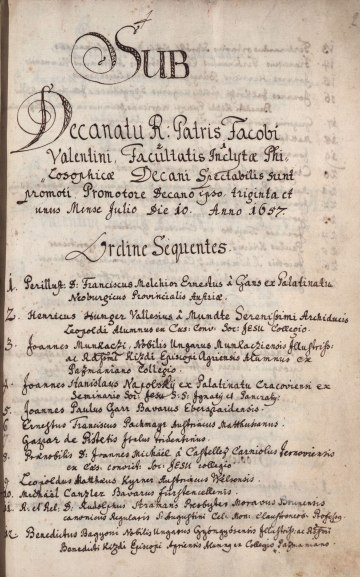 SUB
Decanatu R: Patris Jacobi
Valentini, Facultatis Inclytæ Phi-
losophicæ Decani Spectabilis sunt
promoti, Promotore Decano ipso triginta et
unus Mense Julio Die 10. Anno 1657.
Ordine Sequentes.
1. Perillust: D: Franciscus Melchior Ernestus à Gans ex Palatinatu
Neoburgicus Provincialis Austriæ.
2. Henricus Hunger Vallesius à Mundte Serenissimi Archiducis
Leopoldi Alumnus ex Cæs: Conv: Soc: JESU Collegio.
3. Joannes Munkaczi Nobilis Ungarus Munkacziensis Illustriss:
ac Kisdi Episcopi Agriensis Alumnus ex
Pazmániano Collegio.
4. Joannes Stanislaus Napolsky ex Palatinatu Cracoviensi ex
Seminario Soc: Jesu S:S: Ignatij et Pancratij.
5. Joannes Paulus Garr Bavarus
6. Ernestus Franciscus Pachmayr Austriacus Matthusianus.
7. Gaspar de Italus tridentinus.
8. Prænobilis D: Joannes Michaël à Castellez Carniolus
ex Cæs. convict: Soc: JESU collegio.
9. Leopoldus Matthæus Kyrner Austriacus Welsensis.
10. Michaël Canzler Bavarus fürstencellensis.
11. R. et Rel: D: Rudolphus Strahans Presbyter Moravus Brunensis
canonicus Regularis S: Augustini Cel: Mon: Claustroneob: Professus.
12. Benedictus Bagyoni Nobilis Ungarus Gyöngyösensis Illustriss: ac
Benedicti Kisdi Episcopi Agriensis Alumnus ex Collegio Pazmaniano.